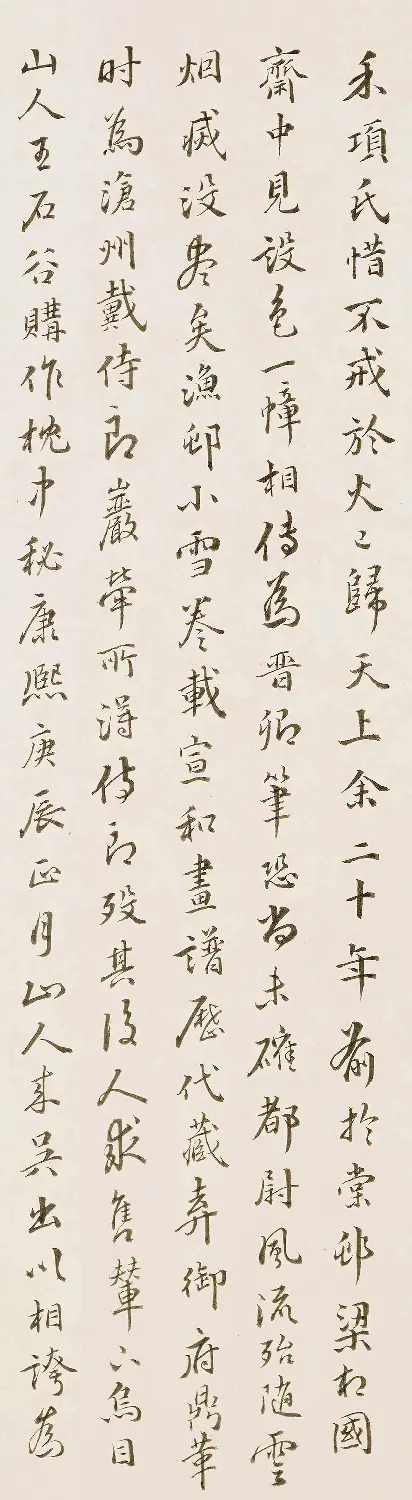 禾項氏惜不戒於火〻歸天上余二十年前於棠邨梁相國
齋中見設色一幛相傳為晋卿筆恐尚未確都尉風流殆随雲
烟滅没盡矣漁邨小雪卷載宣和畫譜歷代藏弆御府鼎革
时為滄州戴侍郎巖犖所得侍郎殁其後人求售輦下烏目
山人王石谷購作枕中秘康熙庚辰正月山人来吴出以相誇為